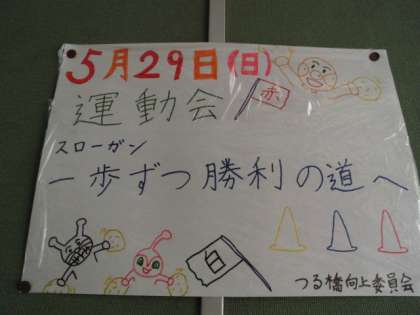 5月29日(日)
運動会
赤
スローガン
一歩ずつ勝利の道へ
白
つる橋向上委員会